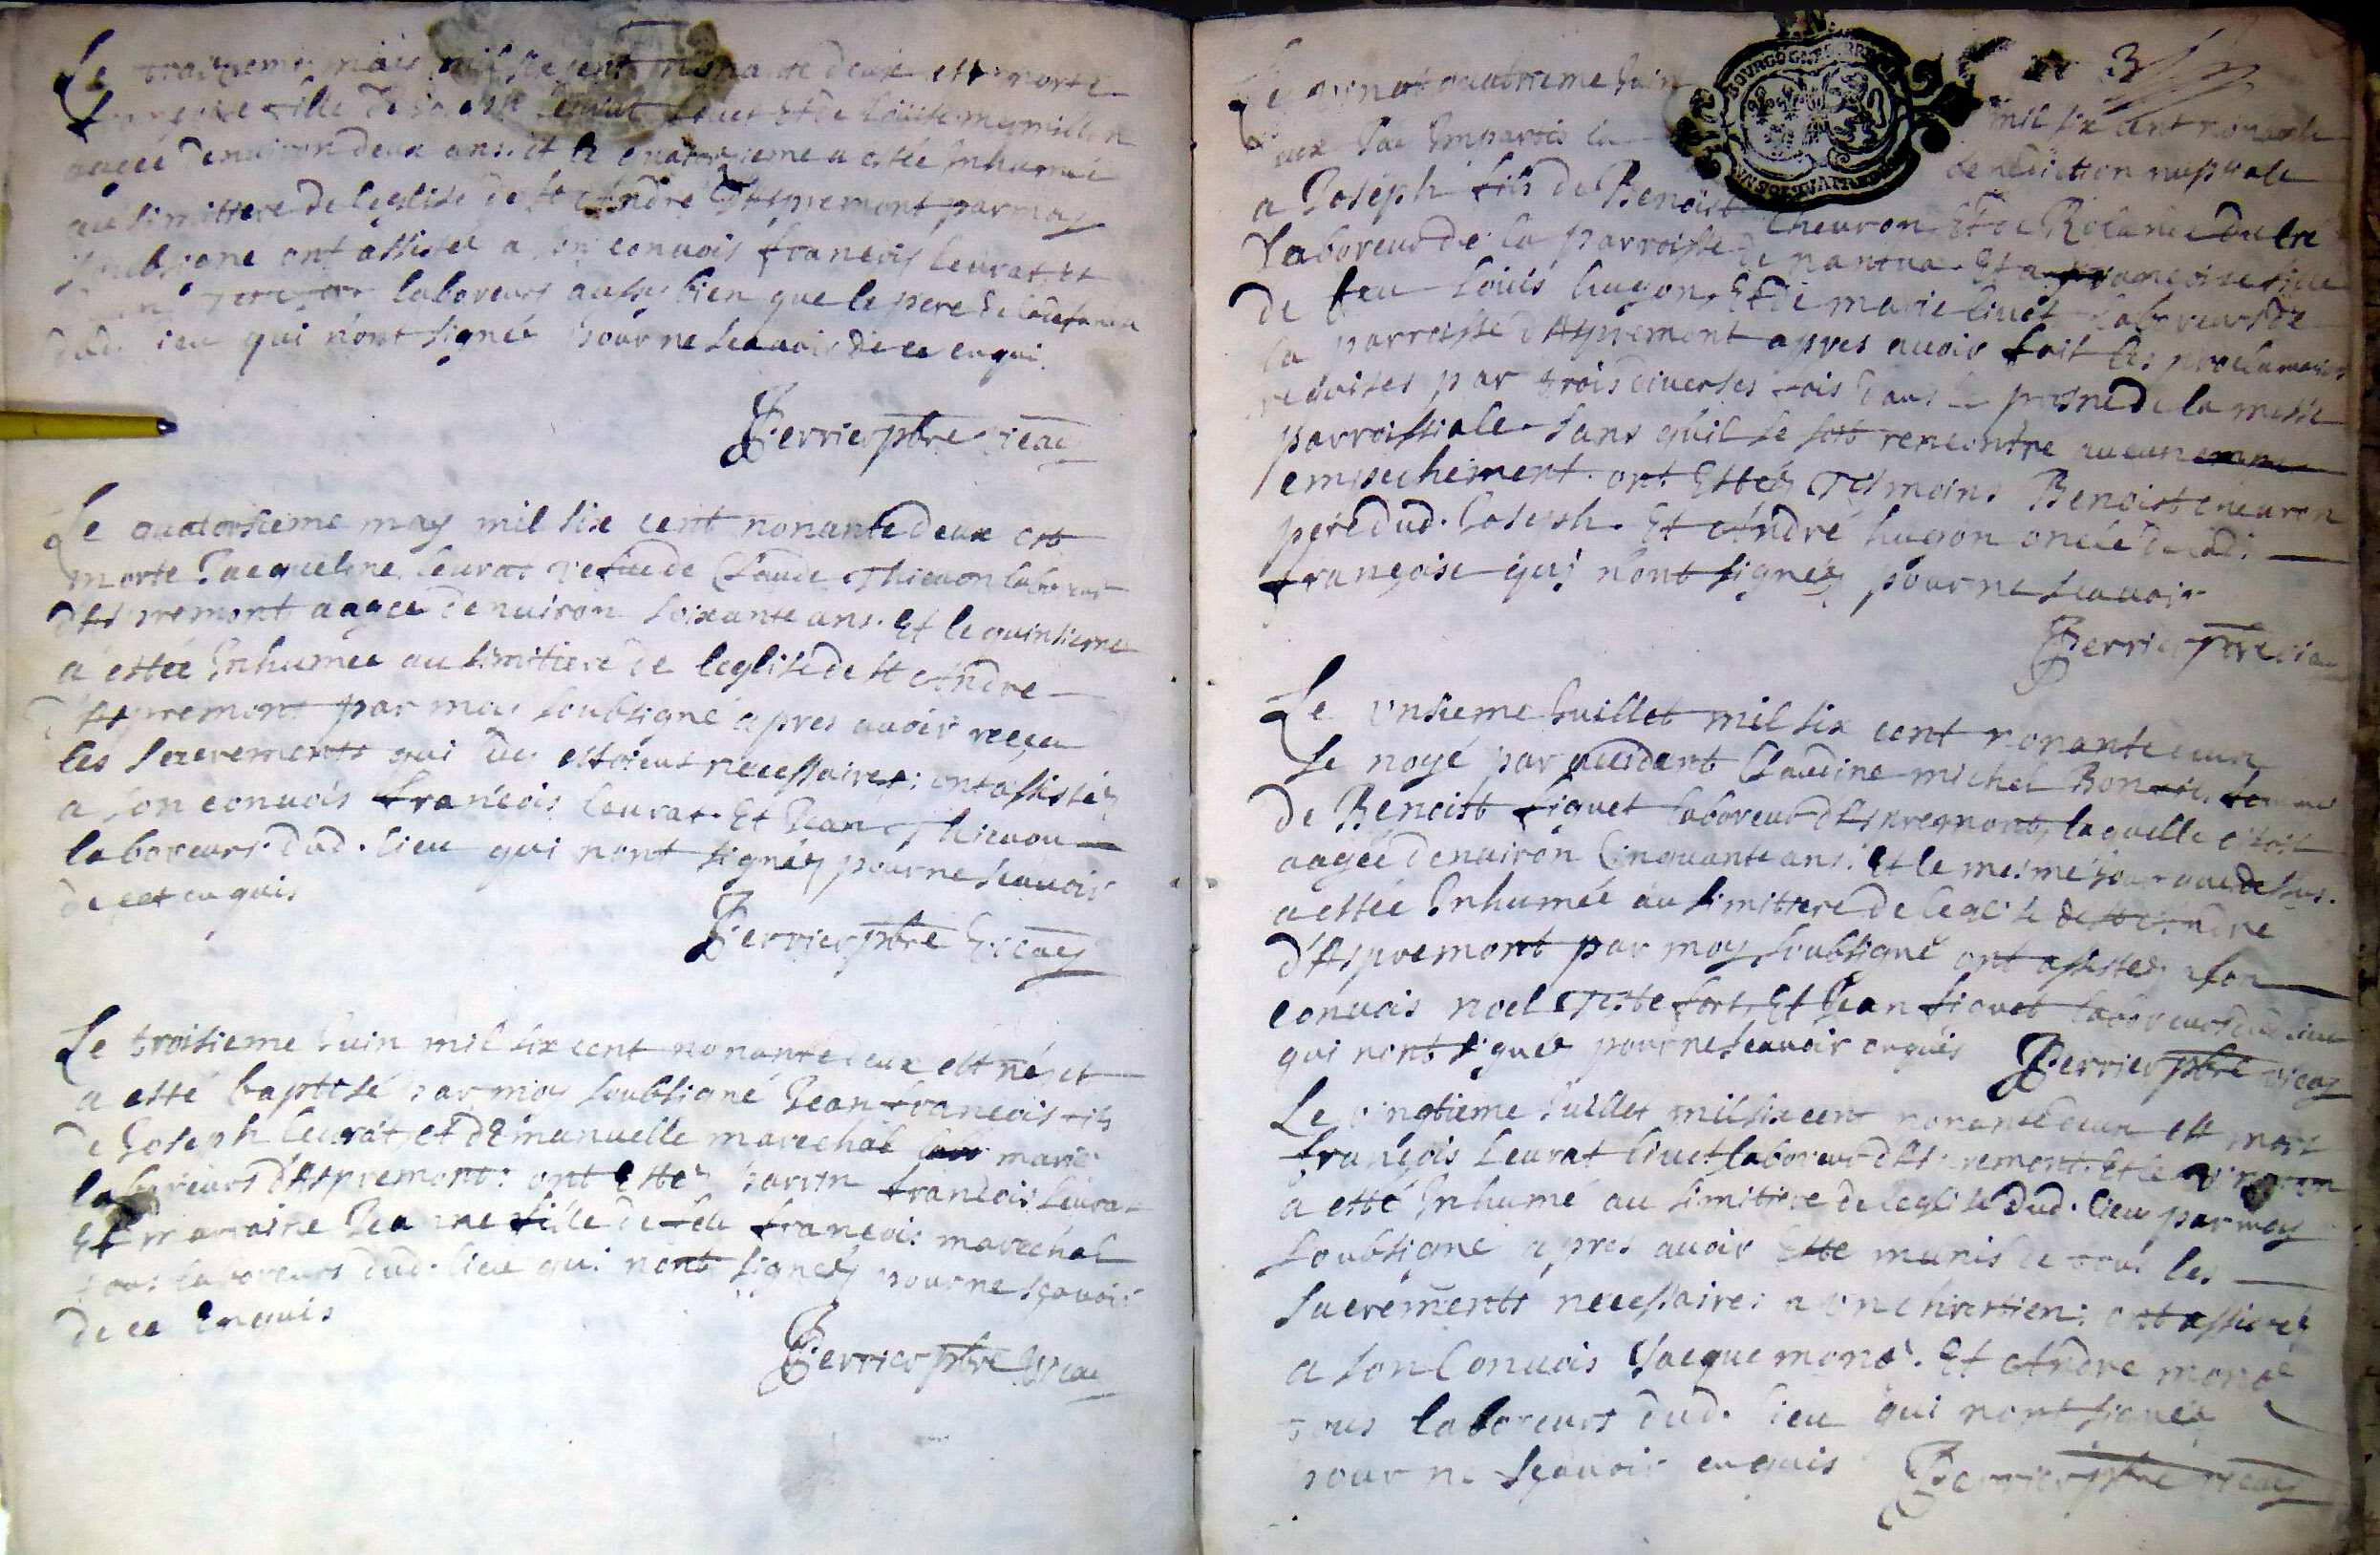 Le mars mil six cent nonante deux est morte
fille de Leurat Livet Et de
aagée denuiron deux ans. et le a estée Inhumée
au simittere de leglise de St André d'Aspremont par moy
soubsigne ont assistée a son conuois francois Leurat et
laboreurs aussy bien que le pere de
dud. lieu qui n'ont signée pour ne scauoir de ce enquis
Perrier pbre vicay
Le quatorsieme may mil six cent nonante deux est
morte Jacqueline Leurat vefue de Claude Thieuon laboreur
d'Aspremont aagée denuiron soixante ans. Et le quinsieme
a estée Inhumée au simitiere de leglise de St Andre
d'Aspremont par moy soubsigné apres auoir reçeu
les secrements qui luy estoient necessaires: ont assistéz
a son conuois francois Leurat. Et Jean Thieuon
laboreurs dud. lieu qui nont signéz pour ne scauoir
de cet enquis
Perrier pbre Vicay
Le troisieme Juin mil six cent nonante deux est né et
a esté baptisé par moy soubsigné Jean francois fils
de Joseph Leurat et d'Emanuelle marechal mariés
laboreurs d'Aspremont: ont estez parrin francois Leurat
Et marraine Jeanne fille de feu francois marechal
tous laboreurs dud. lieu qui nont signéz pour ne sçauoir
de ce Enquis
Perrier pbre Vicay
3
BOURGOGNE
Le vingt quatrieme Juin mil six cent nonante
deux Jay Imparti la benediction nuptiale
a Joseph fils de Benoist Cheuron Et de
laboreur de la parroisse de nantua. Et a francoise fille
de feu Loüis hugon, Et de marie Liuet laboreurs de
la parroisse d'Aspremont apres auoir fait les proclamations
requises par trois diuerses fois dans le prosne de la messe
parroissiale sans qu'il se soit rencontre aucun
empechement. ont Estéz Tesmoins Benoist cheuron
pere dud. Joseph. Et André hugon oncle de lad.
françoise qui n'ont signéz pour ne scauoir
Perrier pbre vicay
Le vnsieme Juillet mil six cent nonante deux
se noyé par accident Claudine michel femme
de Benoist fiquet laboreur d'Aspremont, laquelle estoit
aagée denuiron Cinquante ans. et le mesme jour que dessus.
a estée Inhumée au simittere de leglise de St Andre
d'Aspremont par moy soubsigné ont assistéz a son
conuois noel Testefort, Et Jean fiquet laboreurs dud. lieu
qui nont signée pour ne scauoir enquis Perrier pbre vicay
Le vingtieme Juillet mil six cent nonante deux est mort
françois Leurat Liuet laboreur d'Aspremont. Et le
a esté Inhumé au simittere de leglise dud. lieu par moy
soubsigné apres auoir esté munis de tous les
sacrements necessaires a vn chrestien: ont assistéz
a son Conuois Jacque moné. Et Andre moné
tous laboreurs dud. lieu qui nont signéz
pour ne sçauoir enquis Perrier pbre vicay